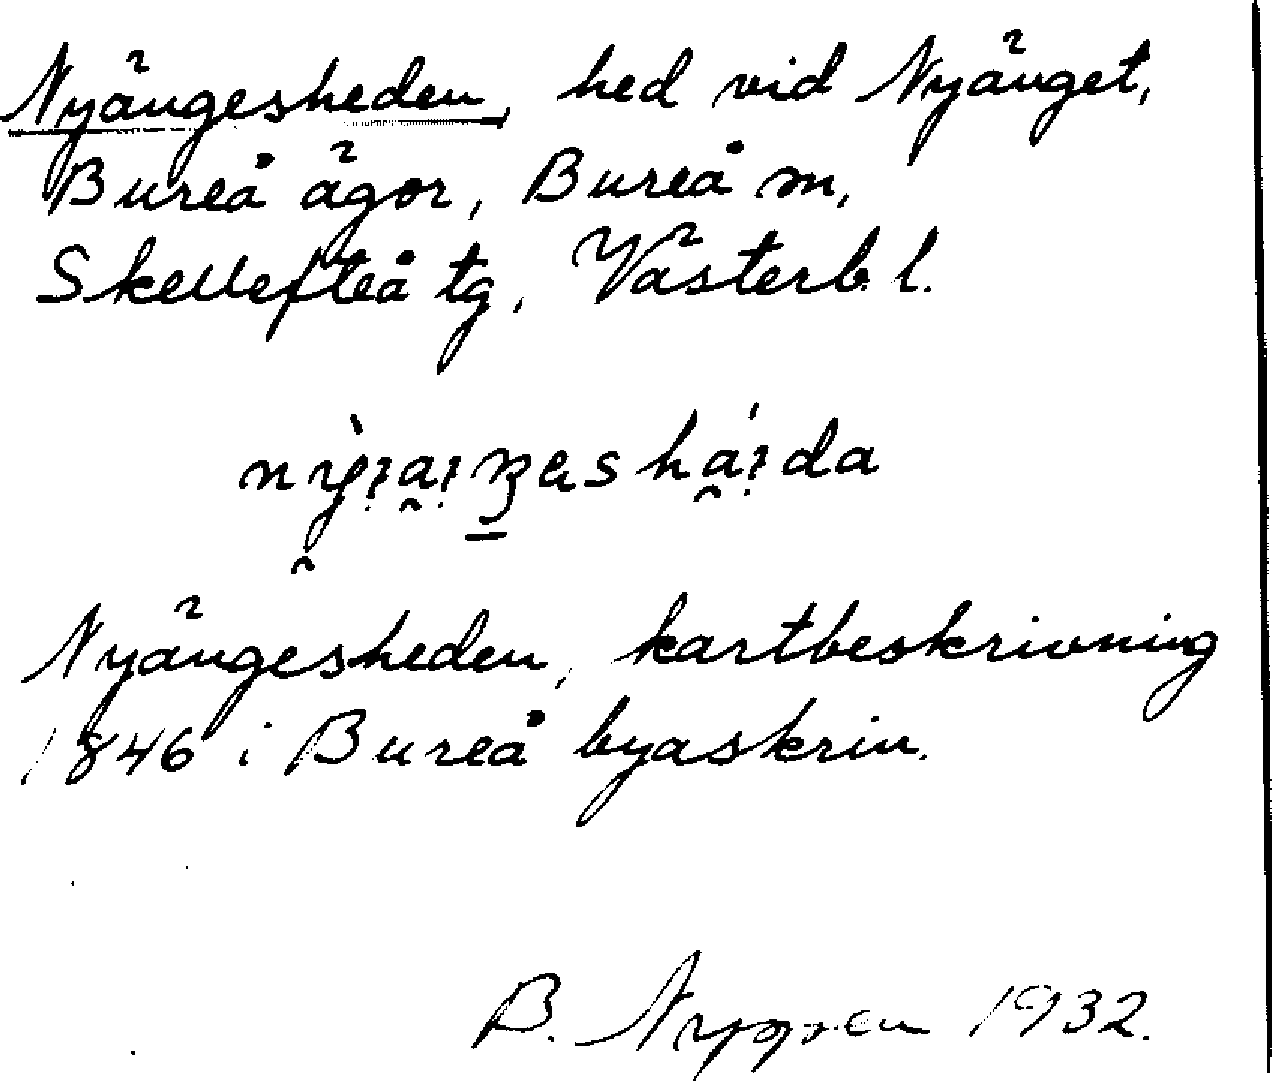 Nyängesheden, hed vid Nyänget,
Bureå ägor, Bureå m,
Skellefteå tg, Västerb. l.
Nyängesheden, kartbeskrivning
1846 i Bureå byaskrin.
B. 1932.